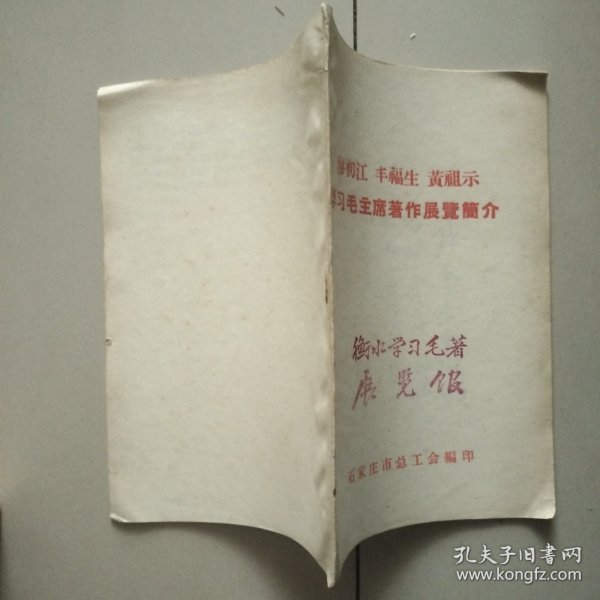 廖初江 丰福生 黄祖示
学习毛主席著作展覽簡介
衡水学习毛著
展览馆
石家庄市总工会編印
孔夫子旧书网
www.kongfz.com